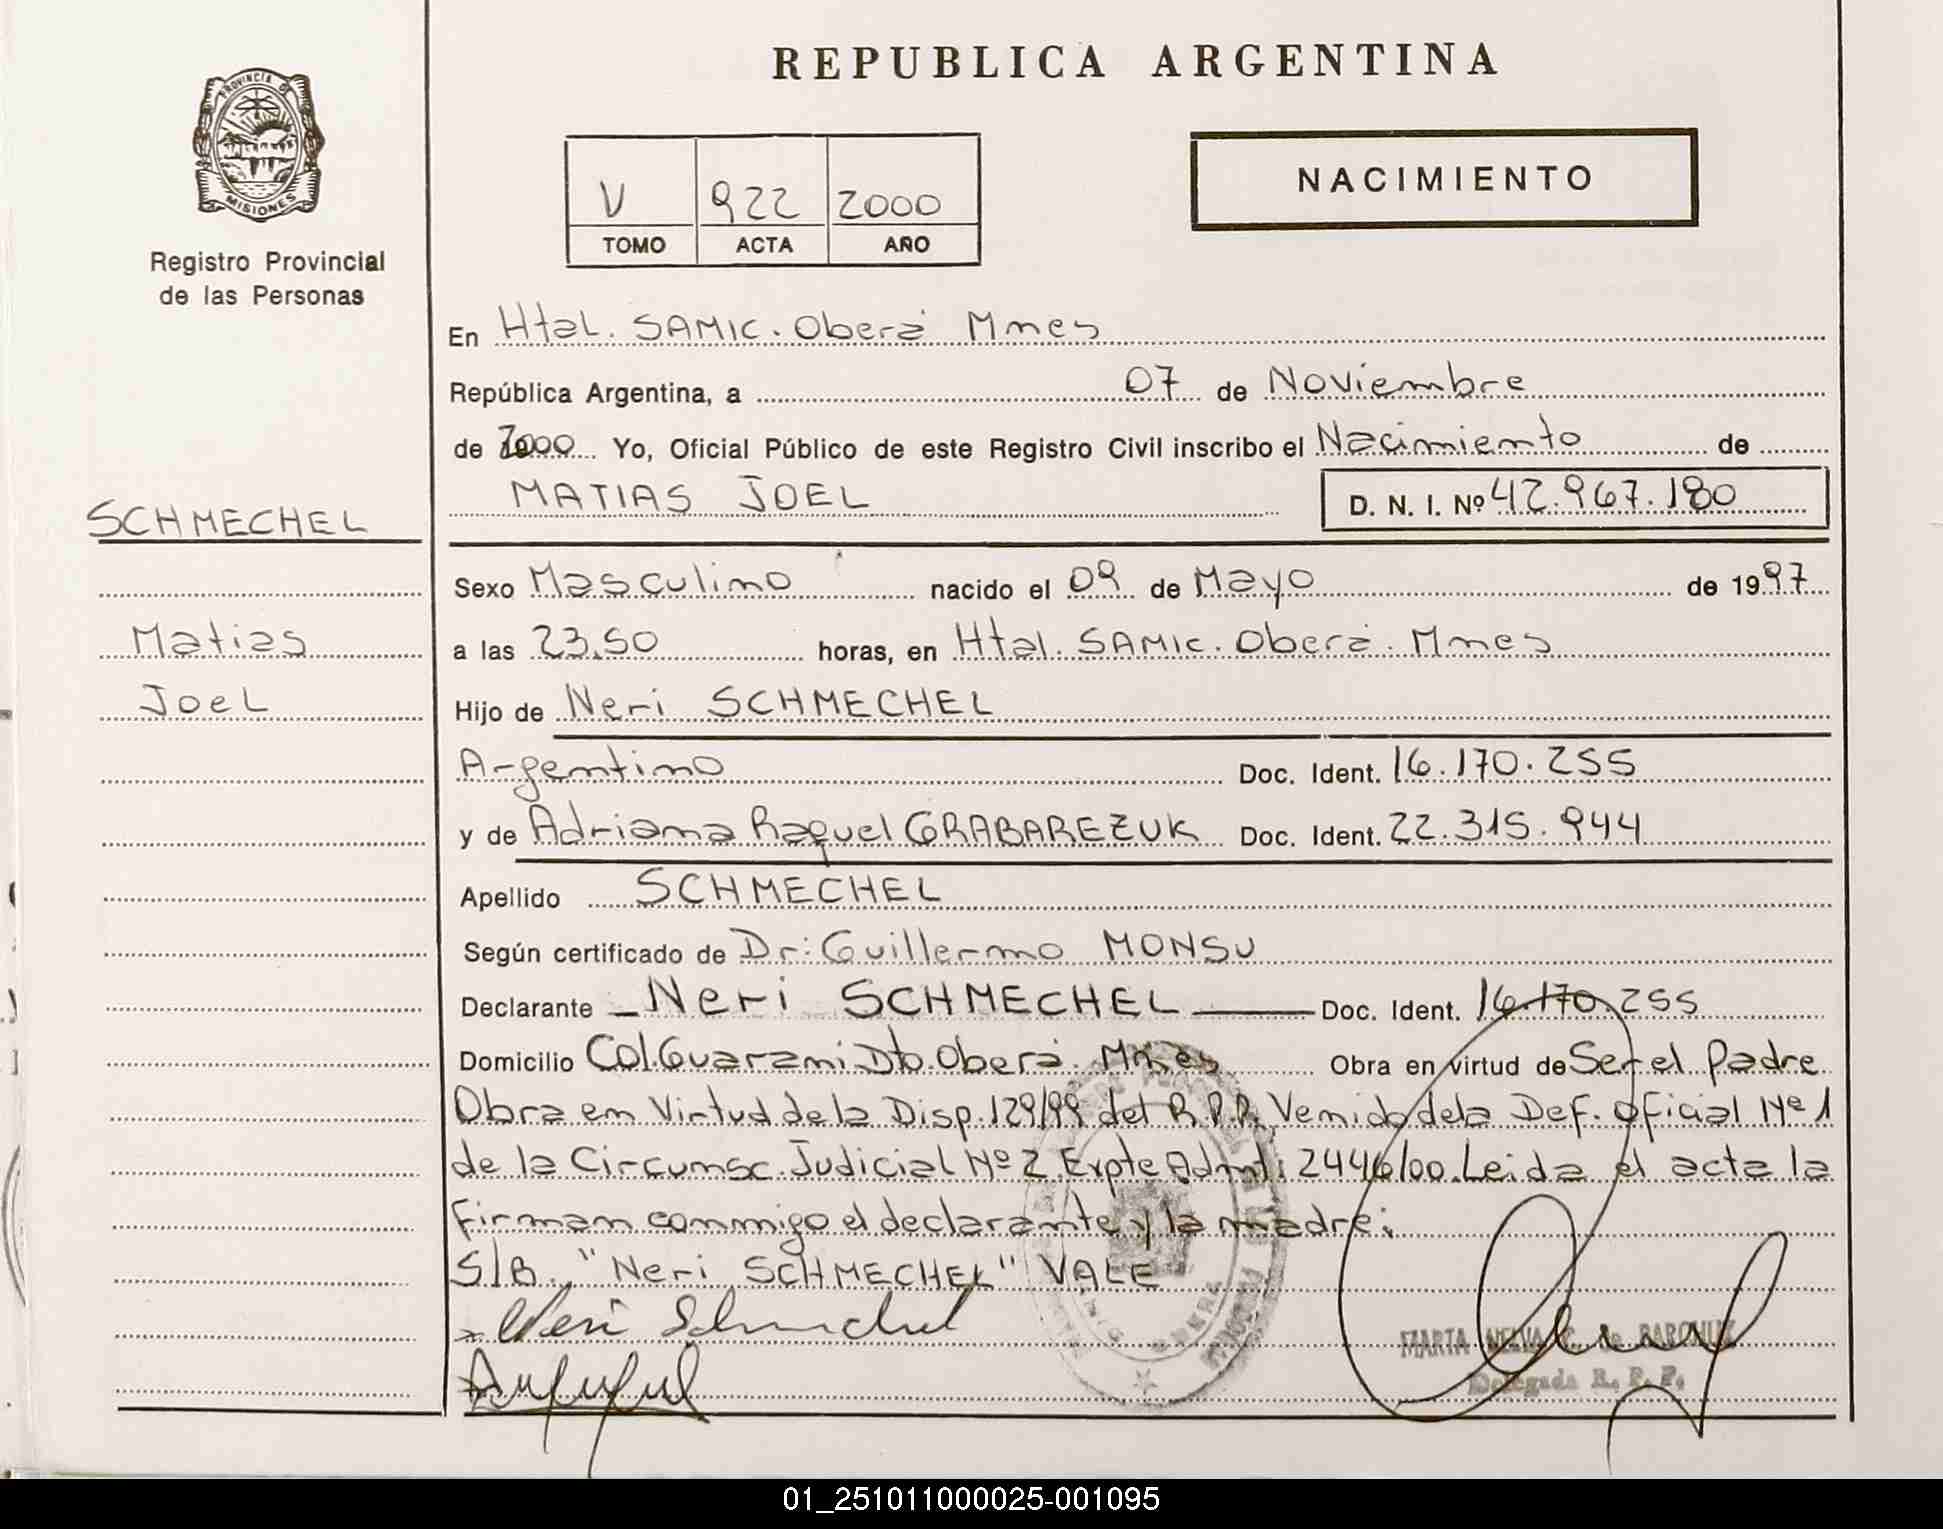 REPUBLICA ARGENTINA
PROVINCIA DE
MISIONES
Registro Provincial
de las Personas
V 922 2000
TOMO ACTA AÑO
NACIMIENTO
En Htal. SAMIC. Oberá Mnes
República Argentina, a 07 de Noviembre
de 2000 Yo, Oficial Público de este Registro Civil inscribo el Nacimiento de
MATIAS JOEL D. N. I. Nº 42.967.180
SCHMECHEL
Matias
Joel
Sexo Masculino nacido el 09 de Mayo de 1997
a las 23.50 horas, en Htal. SAMIC. Oberá. Mnes
Hijo de Neri SCHMECHEL
Argentino Doc. Ident. 16.170.255
y de Adriana Raquel GRABAREZUK Doc. Ident. 22.315.944
Apellido SCHMECHEL
Según certificado de Dr: Guillermo MONSU
Declarante Neri SCHMECHEL Doc. Ident. 16.170.255
Domicilio Col. Guarani. Dto. Oberá. Mnes Obra en virtud de Ser el Padre
Obra en Virtud de la Disp. 129/99 del R.P.P. Venido dela Def. oficial Nº 1
de la Circunsc. Judicial Nº 2 Expte Admt: 2446/00. Leida el acta la
firman conmigo el declarante y la madre:
S/B. "Neri SCHMECHEL" VALE
Neri Schmechel
MARTA de
Delegada R. P. P.
01_251011000025-001095